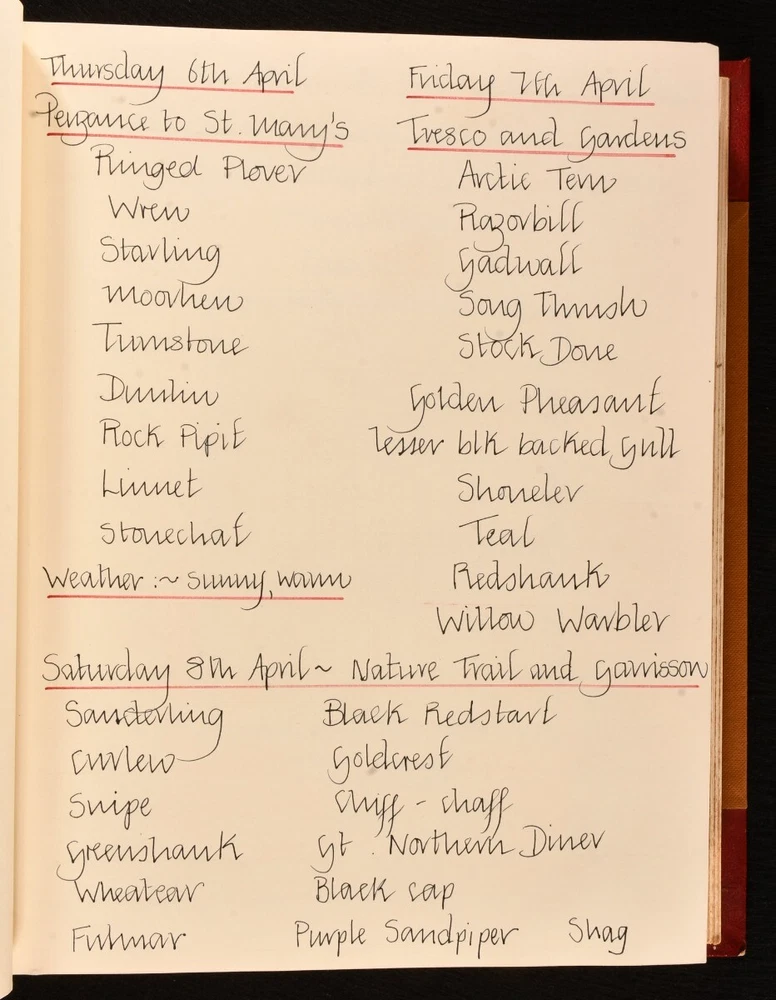 Thursday 6th April
Penzance to St. Mary's
Ringed Plover
Wren
Starling
Moorhen
Turnstone
Dunlin
Rock Pipit
Linnet
Stonechat
Weather :~ Sunny, warm
Friday 7th April
Tresco and Gardens
Arctic Tern
Razorbill
Gadwall
Song Thrush
Stock Dove
Golden Pheasant
lesser blk backed Gull
Shoveler
Teal
Redshank
Willow Warbler
Saturday 8th April ~ Nature Trail and Garrisson
Sanderling
Curlew
Snipe
Greenshank
Wheatear
Fulmar
Black Redstart
Goldcrest
Chiff - chaff
Gt. Northern Diver
Black cap
Purple Sandpiper Shag